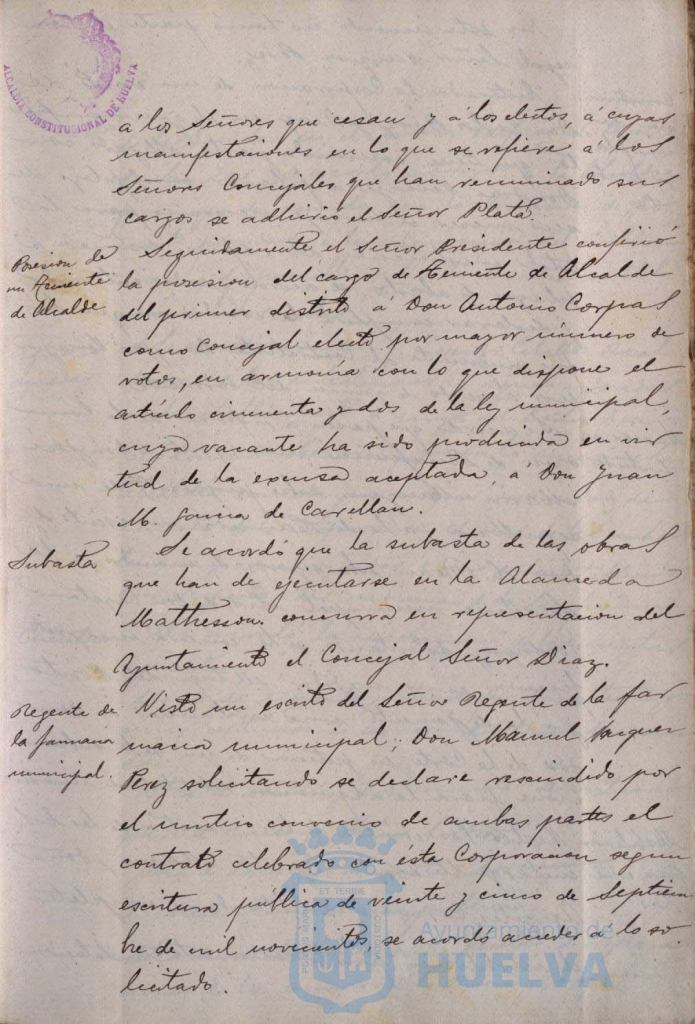 ALCALDIA CONSTITUCIONAL DE HUELVA
á los Señores que cesan y á los electos, á cuyas
manifestaciones en lo que se refiere á los
Señores Concejales que han renunciado sus
cargos se adhirió el Señor Plata.
Posesion de
un Teniente
de Alcalde
Seguidamente el Señor Presidente confirió
la posesion del cargo de Teniente de Alcalde
del primer distrito á Don Antonio Corpas
como Concejal electo por mayor número de
votos, en armonía con lo que dispone el
artículo cincuenta y dos de la ley municipal,
cuya vacante ha sido producida en vir
tud de la excusa aceptada, á Don Juan
M. de
Subasta
Se acordó que la subasta de las obras
que han de ejecutarse en la Alameda
Mathesson concurra en representacion del
Ayuntamiento el Concejal Señor Diaz.
Regente de
la farmacia
municipal.
Visto un escrito del Señor Regente de la far
macia municipal, Don Manuel Vazquez
Perez solicitando se declare rescindido por
el mutuo convenio de ambas partes el
contrato celebrado con ésta Corporacion segun
escritura pública de veinte y cinco de Septiem
bre de mil novecientos, se acordó acceder á lo so
licitado.
Ayuntamiento de
HUELVA